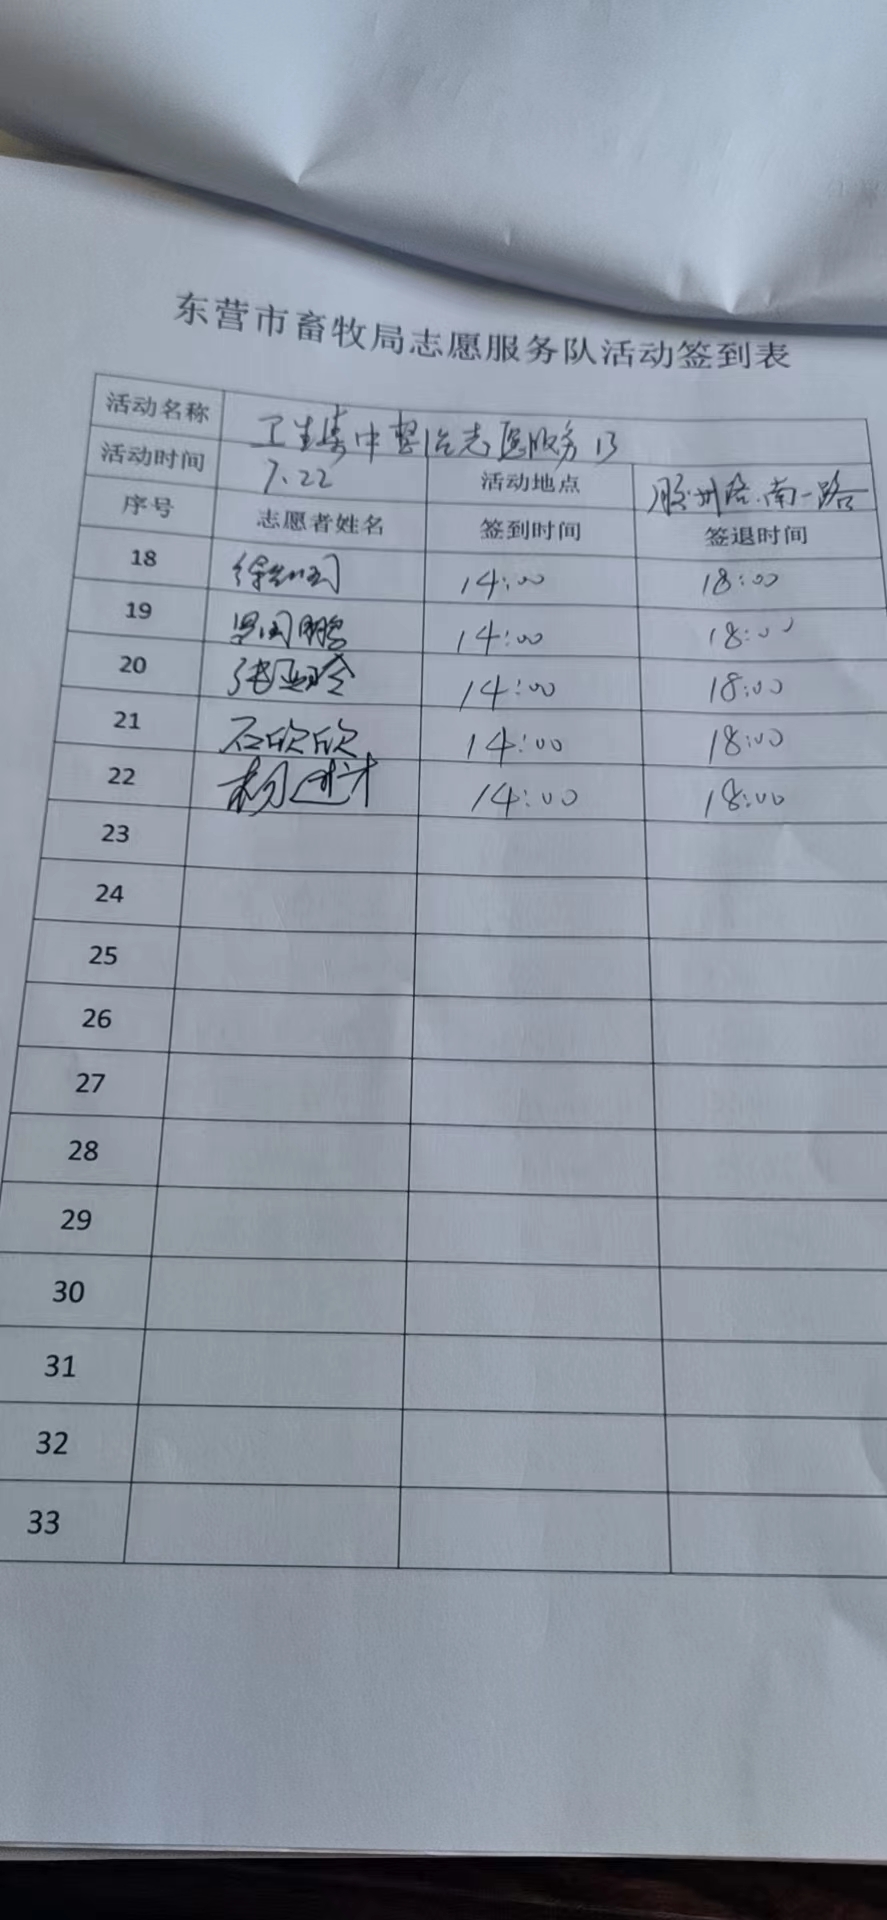 东营市畜牧局志愿服务队活动签到表
活动名称 卫生集中整治志愿服务13
活动时间 7.22 活动地点 胶州路.南一路
序号 志愿者姓名 签到时间 签退时间
18 14:00 18:00
19 14:00 18:00
20 张亚玲 14:00 18:00
21 石欣欣 14:00 18:00
22 杨 14:00 18:00
23
24
25
26
27
28
29
30
31
32
33